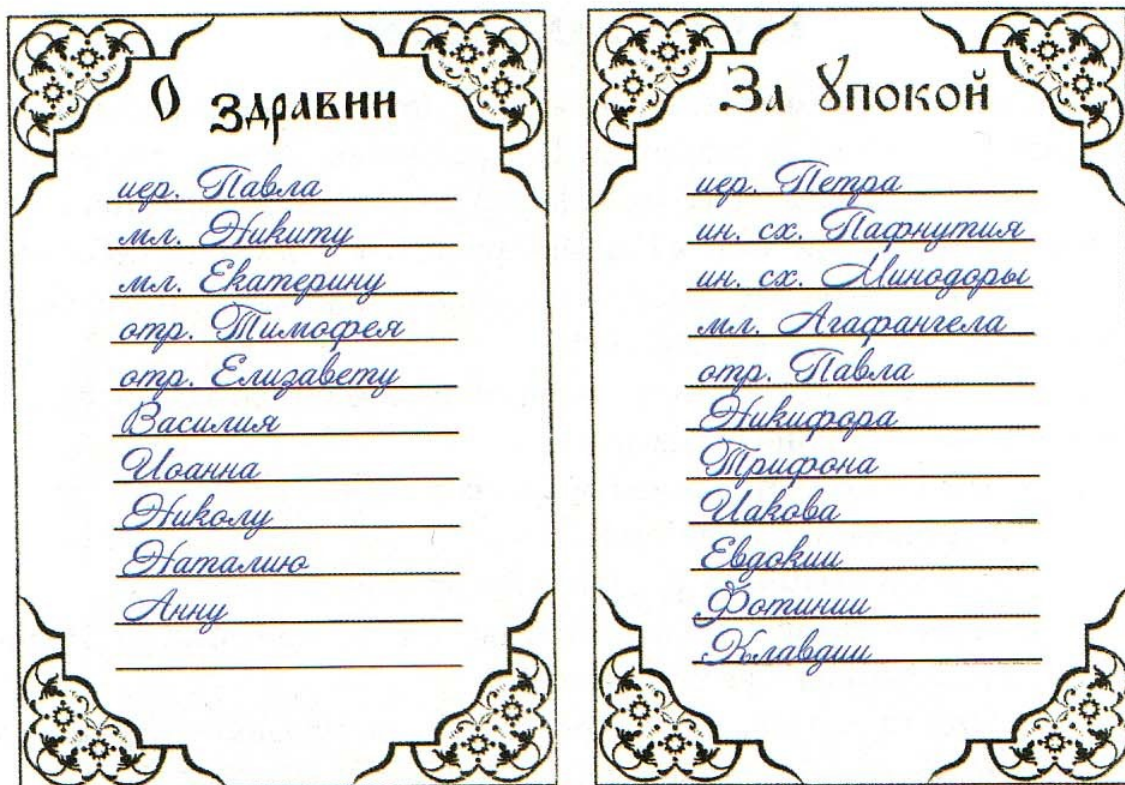 О здравии
иер. Павла
мл. Никиту
мл. Екатерину
отр. Тимофея
отр. Елизавету
Василия
Иоанна
Николу
Наталию
Анну
За Упокой
иер. Петра
ин. сх. Пафнутия
ин. сх. Минодоры
мл. Агафангела
отр. Павла
Никифора
Трифона
Иакова
Евдокии
Фотинии
Клавдии